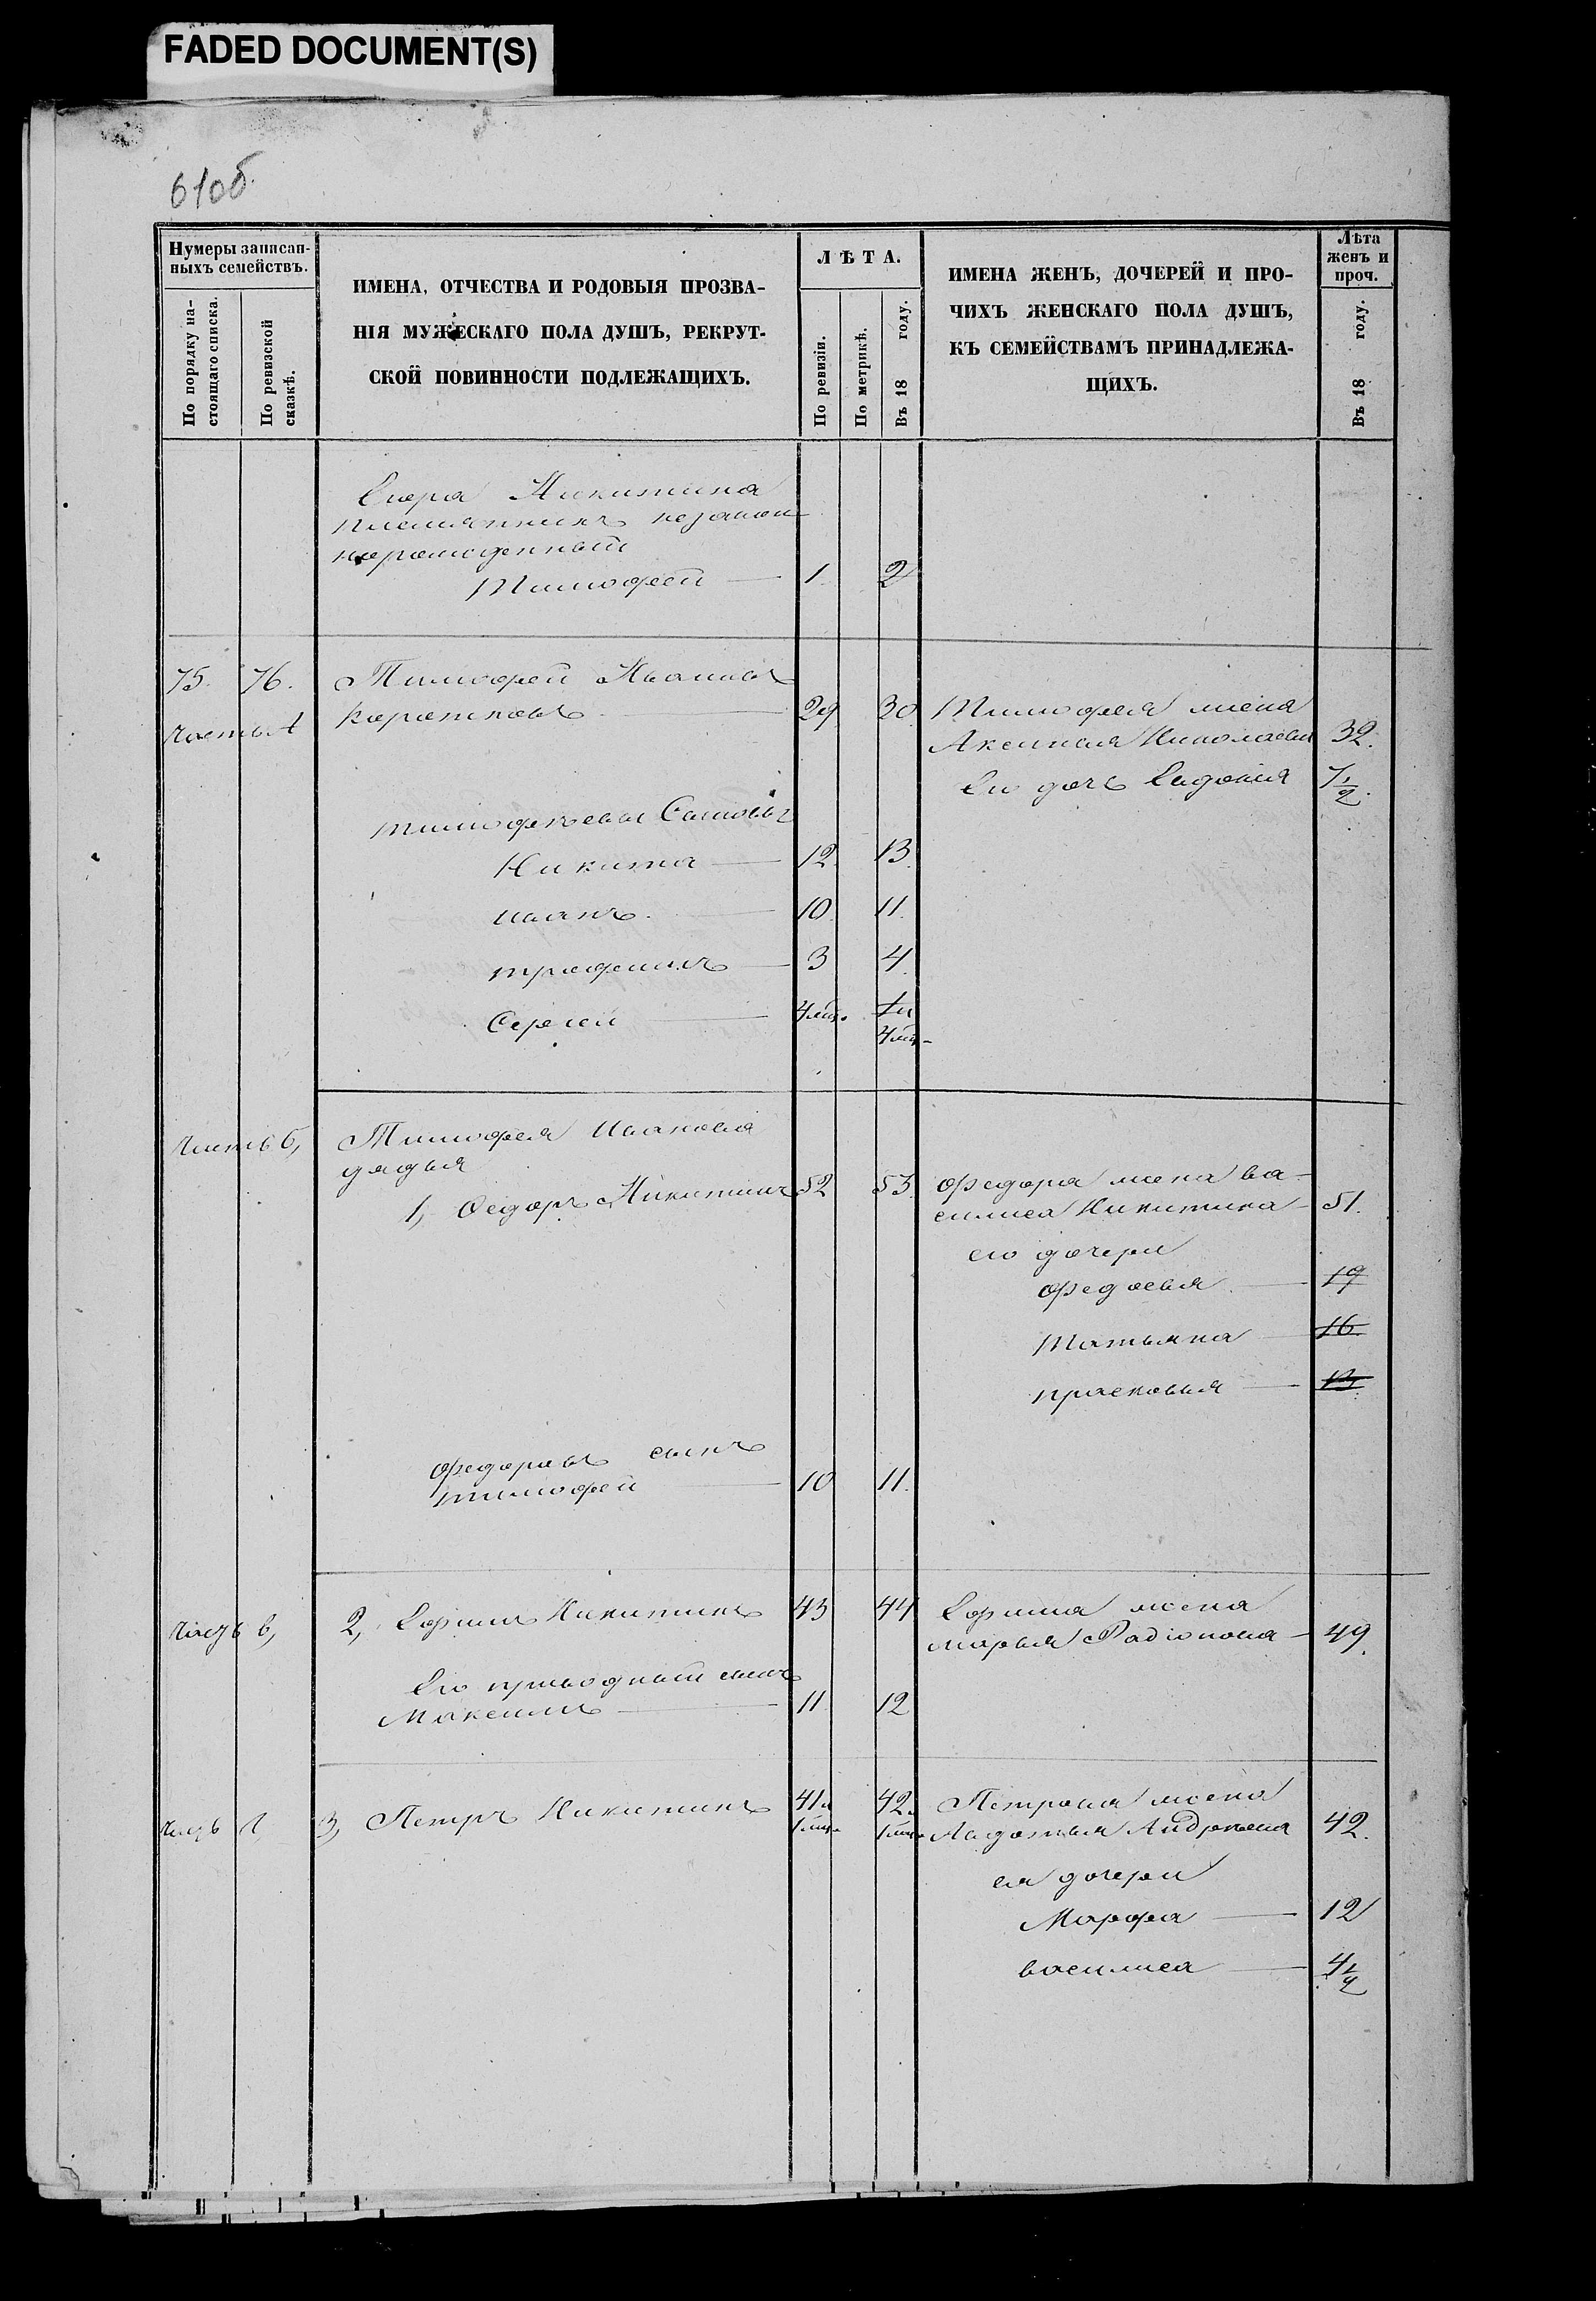 FADED DOCUMENT(S)
61об.
Нумеры записан-
ныхъ семействъ.
По порядку на-
стоящаго списка.
По ревизской
сказкѣ.
ИМЕНА, ОТЧЕСТВА И РОДОВЫЯ ПРОЗВА-
НІЯ МУЖЕСКАГО ПОЛА ДУШЪ, РЕКРУТ-
СКОЙ ПОВИННОСТИ ПОДЛЕЖАЩИХЪ.
ЛѢТА.
По ревизіи.
По метрикѣ.
Въ 18 году.
ИМЕНА ЖЕНЪ, ДОЧЕРЕЙ И ПРО-
ЧИХЪ ЖЕНСКАГО ПОЛА ДУШЪ,
КЪ СЕМЕЙСТВАМЪ ПРИНАДЛЕЖА-
ЩИХЪ.
Лѣта
женъ и
проч.
Въ 18 году.
Никитина
племянникъ незакон
норожденный
Тимофей 1 2
75. 76. Тимофей Ивановъ
часть А Каратновъ 29 30 Тимофея жена
Аксинья Николаева 32.
Его дочь Евдокия 7 1/2.
тимофеевы Сыновья
Никита 12. 13.
иванъ. 10. 11.
трофимъ 3 4.
Сергей 4 мѣс. 1 и
4 мѣс.
часть б, Тимофея иванова
дядья
1, Федоръ Никитинъ 52 53. федора жена ва-
силиса Никитина 51.
его дочери
федосья 19
татьяна 16
прасковья 13
федоровъ сынъ
тимофей 10 11.
часть в, 2, Ефимъ Никитинъ 43 44 Ефима жена
марья Радіонова 49.
Его приводный сынъ
Максимъ 11 12
часть г, 3, Петръ Никитинъ 41 и 42 и Петрова жена
1 мѣс. 1 мѣс. Андреева 42.
ея дочери
Марфа 12
василиса 4 1/4